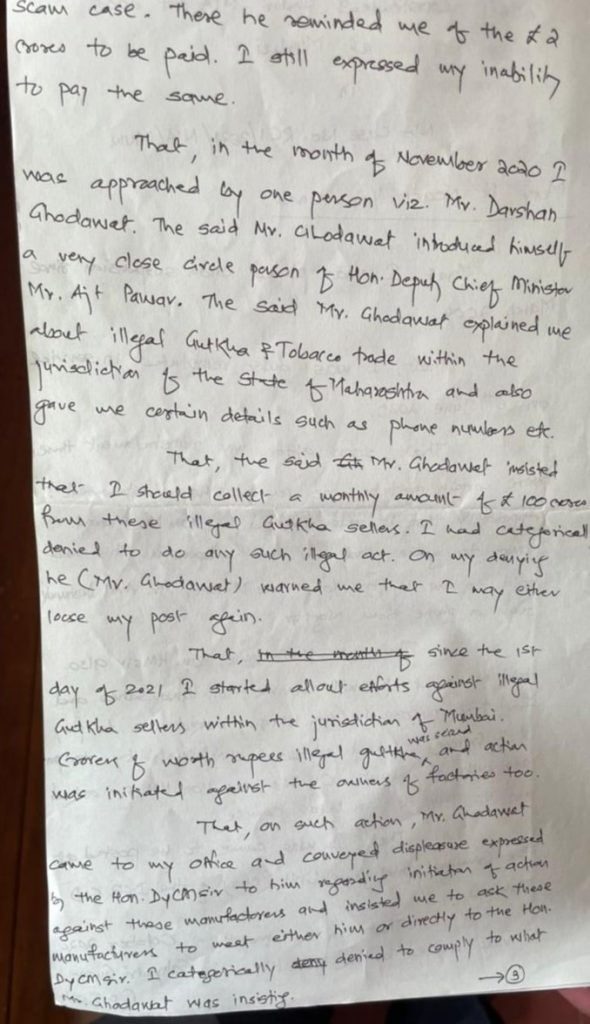 scam case. There he reminded me of the ₹ 2
crores to be paid. I still expressed my inability
to pay the same.
That, in the month of November 2020 I
was approached by one person viz. Mr. Darshan
Ghodawat. The said Mr. Ghodawat introduced himself
a very close circle person of Hon. Deputy Chief Minister
Mr. Ajt Pawar. The said Mr. Ghodawat explained me
about illegal Gutkha & Tobacco trade within the
jurisdiction of the State of Maharashtra and also
gave me certain details such as phone numbers etc.
That, the said Mr. Ghodawat insisted
that I should collect a monthly amount of ₹ 100 crores
from these illegal Gutkha sellers. I had categorical
denied to do any such illegal act. On my denying
he (Mr. Ghodawat) warned me that I may either
loose my post again.
That, in the month of since the 1st
day of 2021 I started allout efforts against illegal
Gutkha sellers within the jurisdiction of Mumbai.
was seized
Crores of worth rupees illegal gutkha, and action
was initiated against the owners of factories too.
That, on such action, Mr. Ghadawat
came to my office and conveyed displeasure expressed
by the Hon. DyCM sir to him regarding initiation of action
against these manufactorers and insisted me to ask these
manufacturers to meet either him or directly to the Hon.
DyCM sir. I categorically deny denied to comply to what
Mr. Ghadawat was insistig.
→ 3